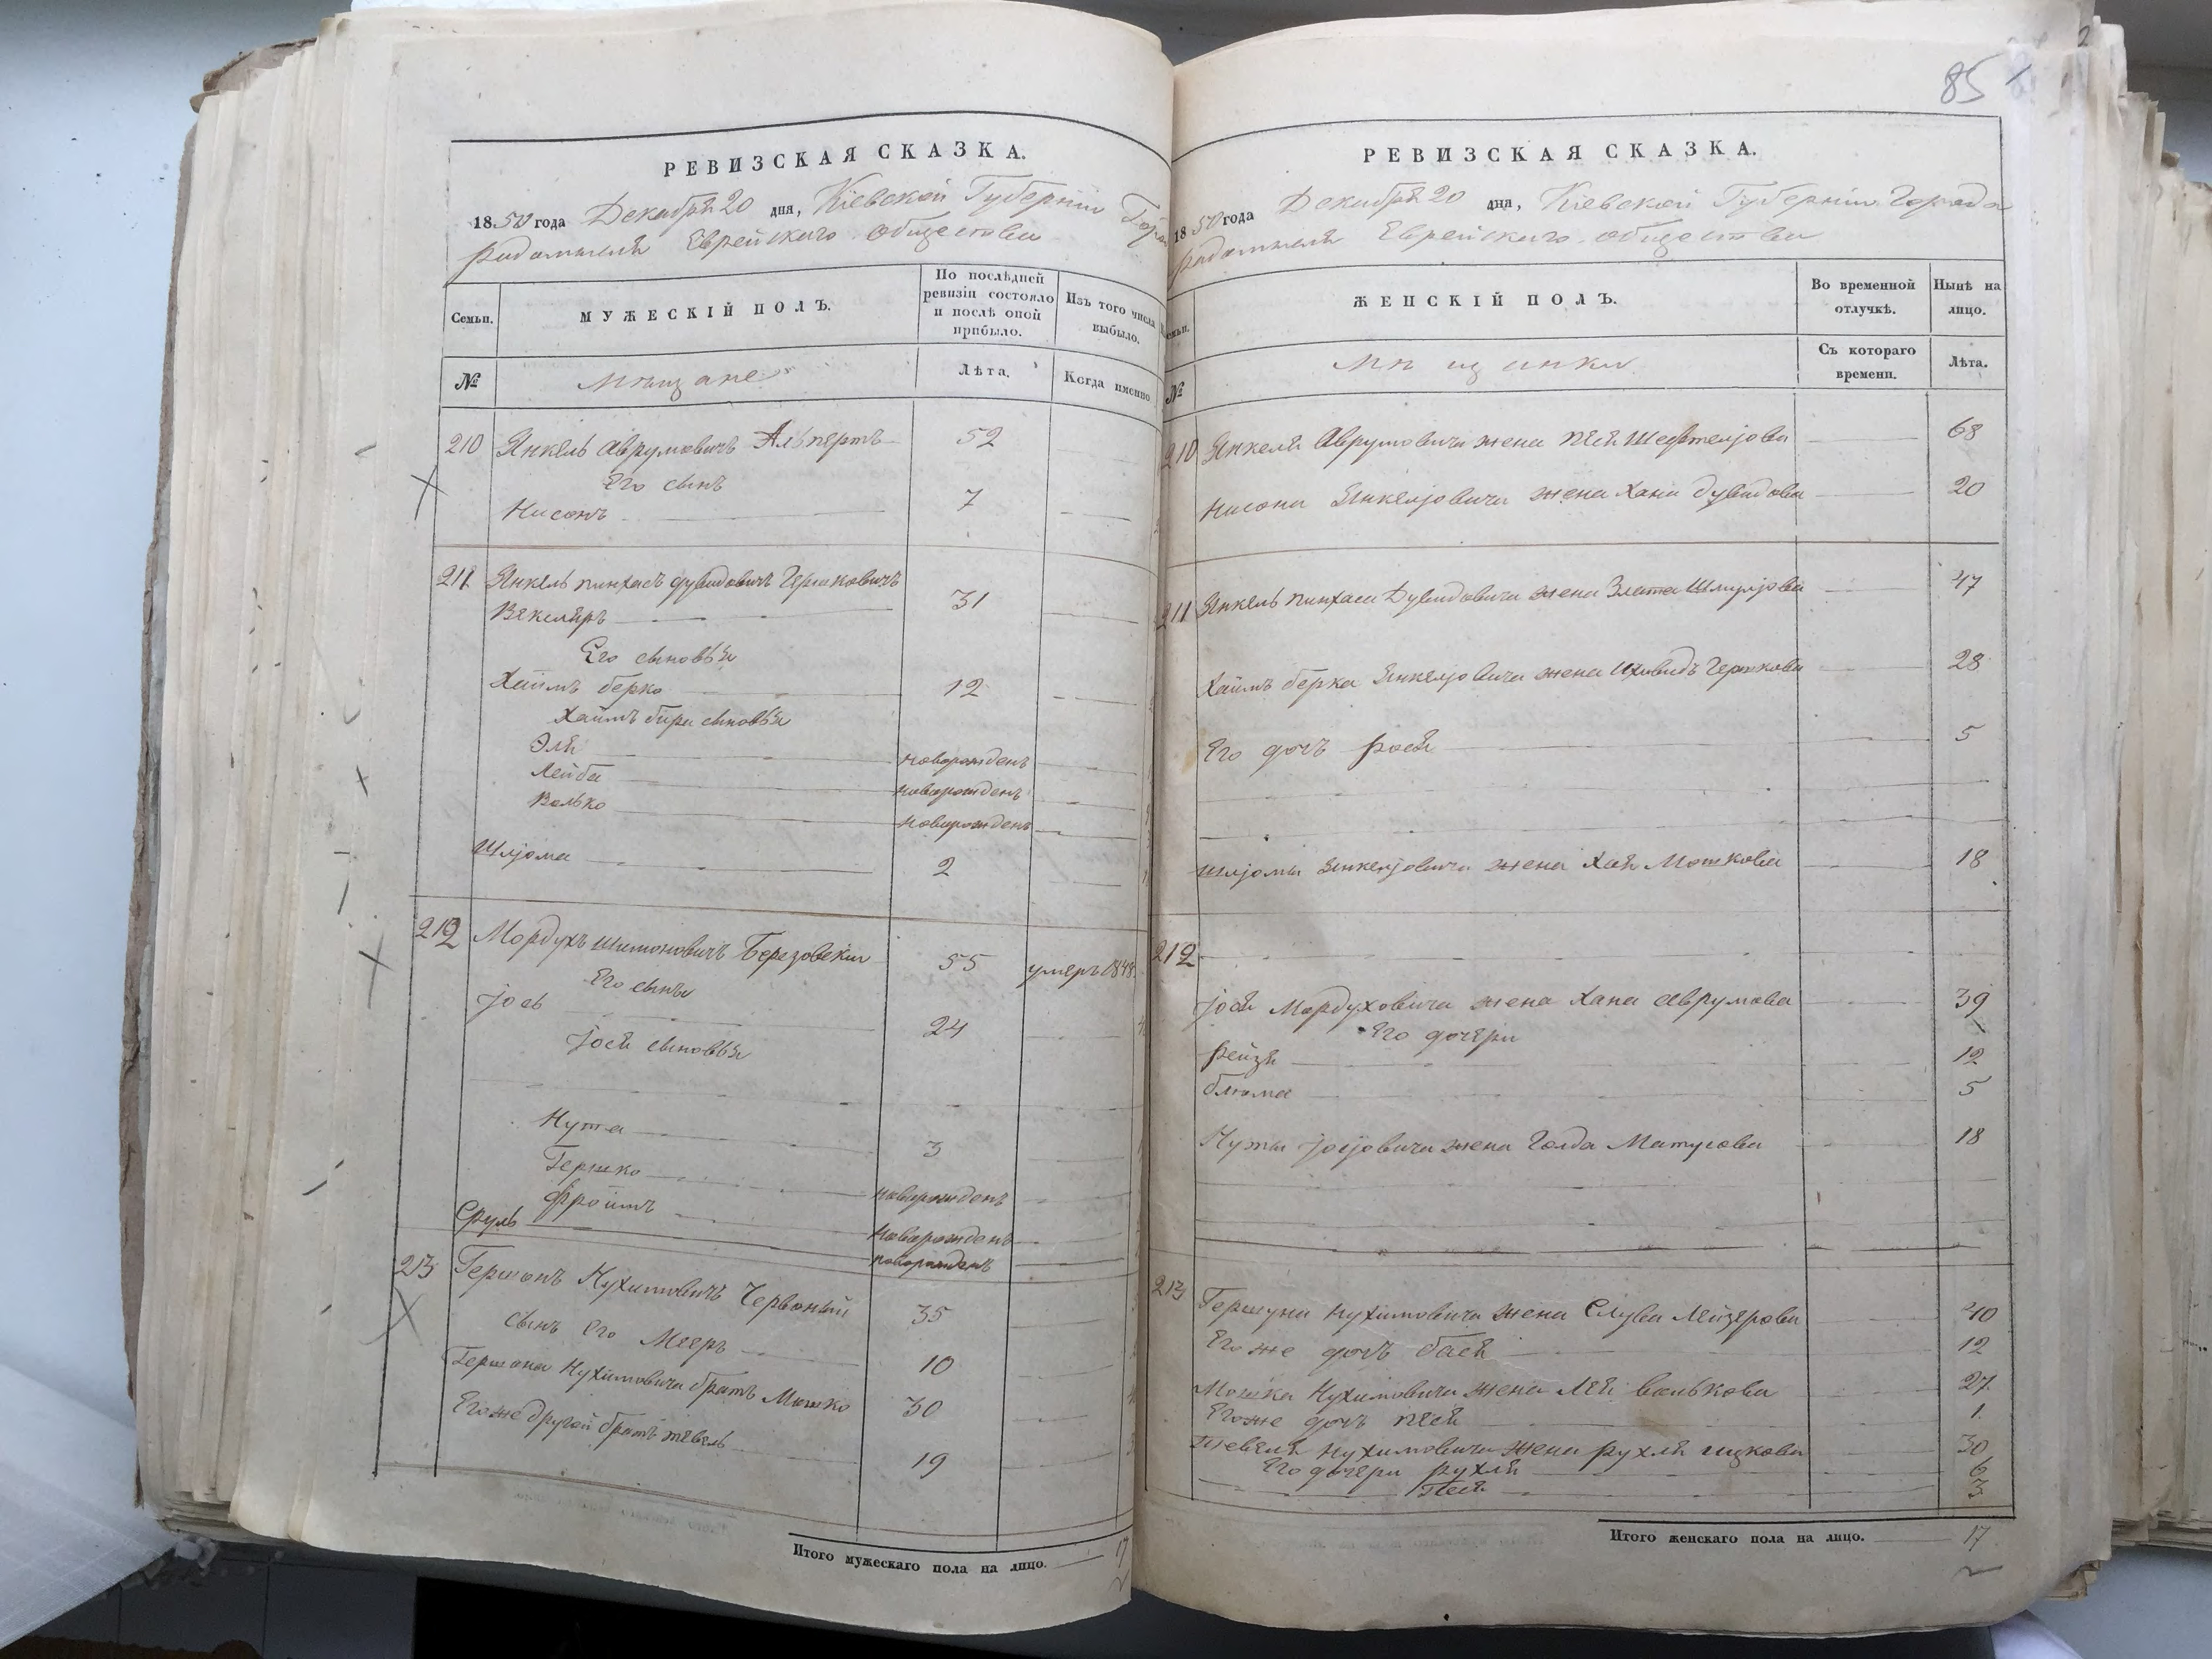 85
РЕВИЗСКАЯ СКАЗКА.
1850 года Декабря 20 дня, Кіевской Губерніи
Радомысля Еврейскаго общества
Семьи.
МУЖЕСКІЙ ПОЛЪ.
По послѣдней ревизіи состояло и послѣ оной прибыло.
Изъ того числа выбыло.
№
мѣщане
Лѣта.
Когда именно
210 Янкель Аврумовичъ Альпертъ 52
Его сынъ
Нисонъ 7
211 Янкель пинхасъ дувидовичъ Гершковичъ
Векслеръ 31
Его сыновья
Хаимъ берко 12
Хаимъ бера сыновья
Эля новорожденъ
Лейба новорожденъ
Волько новорожденъ
Шліома 2
212 Мордухъ шимоновичъ Березовскій 55 умеръ 1848
Его сыны
Іось 24
Іося сыновья
Нута 3
Гершко новорожденъ
Фроимъ новорожденъ
Сруль новорожденъ
213 Гершонъ Нухимовичъ Червоный 35
Сынъ его Мееръ 10
Гершона Нухимовича братъ Мошко 30
Его же другой братъ тевель 19
Итого мужескаго пола на лицо. 17
РЕВИЗСКАЯ СКАЗКА.
1850 года Декабря 20 дня, Кіевской Губерніи Города
Радомысля Еврейскаго общества
ЖЕНСКІЙ ПОЛЪ.
Во временной отлучкѣ.
Нынѣ на лицо.
№
мѣщанки
Съ котораго времени.
Лѣта.
210 Янкеля Аврумовича жена Песя Шефтеліова 68
Нисона Янкеліовича жена Хана дувидова 20
211 Янкель пинхаса Дувидовича жена Злата Шмуліова 47
Хаимъ берка Янкеліовича жена Гершкова 28
Его дочь Рося 5
Шліомы Янкеліовича жена Хая Мошкова 18
212
Іося Мордуховича жена Хана Аврумова 39
Его дочери
Рейзя 12
блюма 5
Нуты Іосіовича жена Голда Матусова 18
213 Гершуна нухимовича жена Слува Лейзерова 40
Его же дочь бася 12
Мошка Нухимовича жена Лея волькова 27
Его же дочь песя 1
Тевеля нухимовича жена рухля ицкова 30
Его дочери рухля 6
Песя 3
Итого женскаго пола на лицо. 17